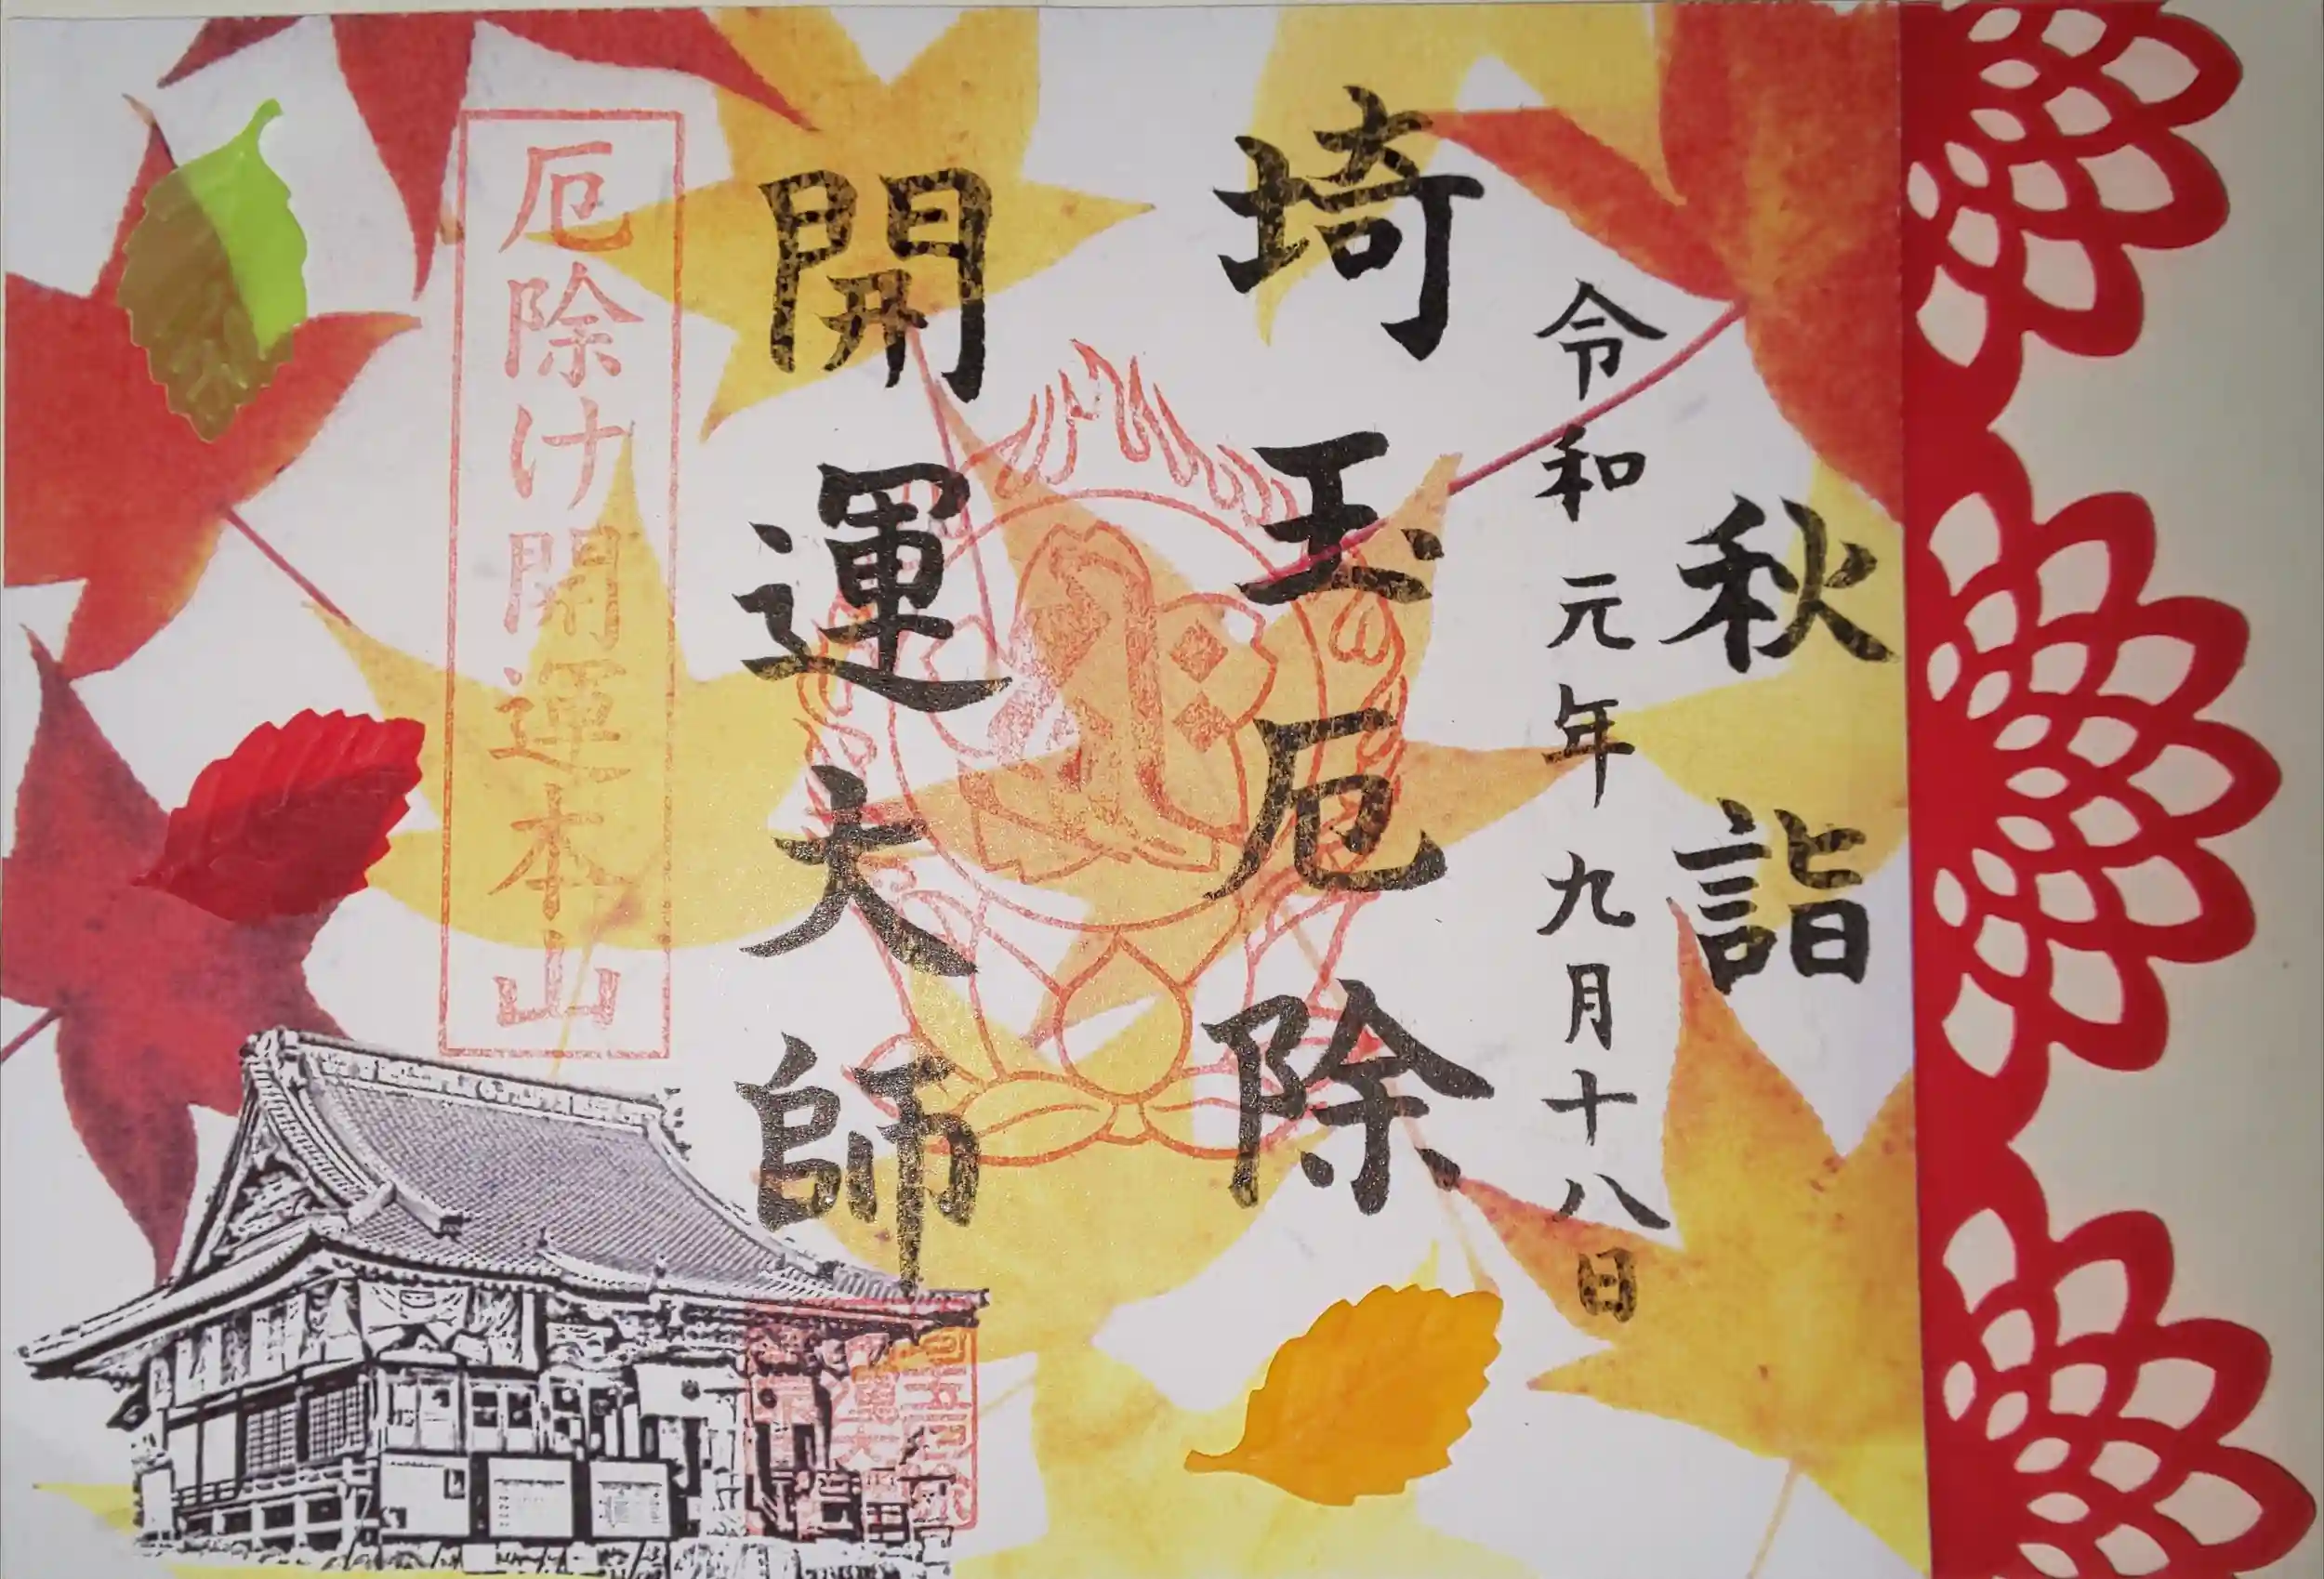 秋詣
令和元年九月十八日
埼玉厄除
開運大師
厄除け開運本山